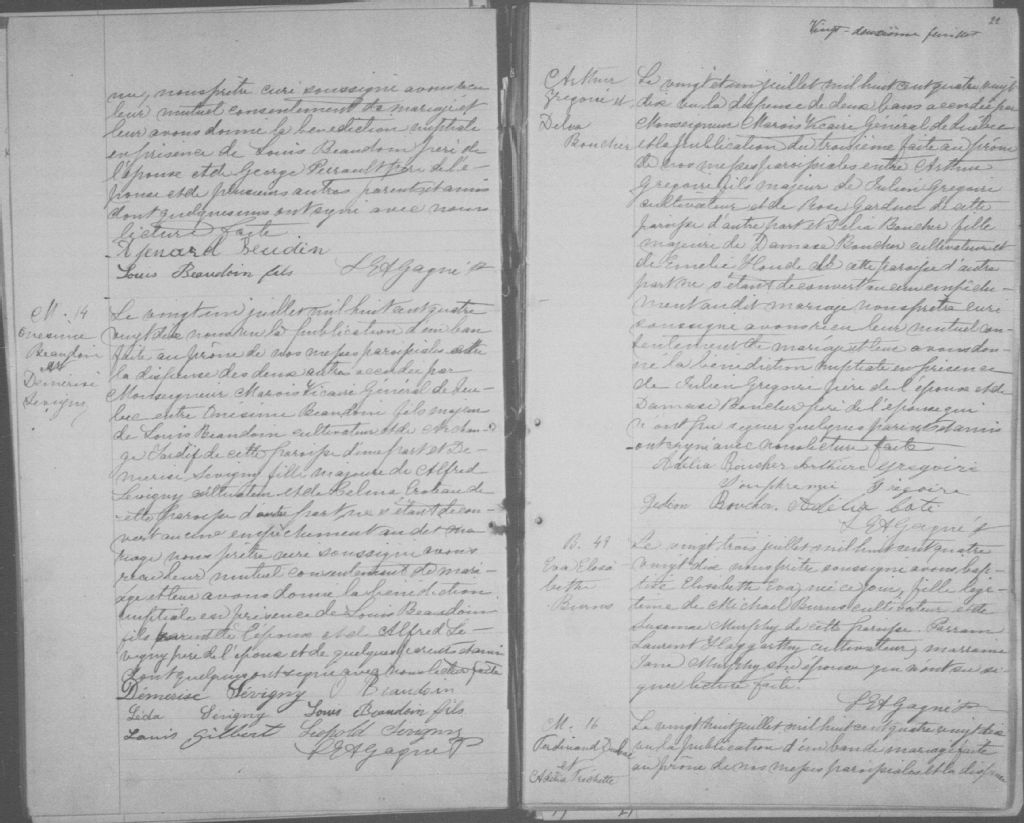 nu, nous prêtre curé soussigné avons reçu
leur mutuel consentement de mariage et
leur avons donné la bénédiction nuptiale
en présence de Louis Beaudoin père de
l'épouse et de George Perrault père de l'é-
pouse et de plusieurs autres parents et amis
dont quelques uns ont signé avec nous
lecture faite
Louis Beaudoin fils L E A Gagné Ptr
M. 14
Onesime
Beaudoin
et
Démérise
Sevigny
Le vingt un juillet mil huit cent quatre
vingt dix nous vu la publication d'un ban
faite au prône de nos messes paroissiales
la dispense des deux autres accordée par
Monseigneur Marois Vicaire Général de Qué-
bec entre Onesime Beaudoin fils majeur
de Louis Beaudoin cultivateur et de Archan-
ge Jardif de cette paroisse d'une part et De-
merise Sevigny fille majeure de Alfred
Sévigny cultivateur et de Celina de
cette paroisse d'autre part ne s'étant décou-
vert aucun empêchement au dit ma-
riage nous prêtre curé soussigné avons
reçu leur mutuel consentement de mari-
age et leur avons donné la bénédiction
nuptiale en présence de Louis Beaudoin
fils de l'époux et de Alfred Sé-
vigny père de l'épouse et de quelques parents et amis
dont quelques uns ont signé avec nous lecture faite
Démerise Sévigny Beaudoin
Léda Sevigny Louis Beaudoin fils
Louis Gilbert Léopold Sevigny
L E A Gagné P
22
Vingt-deuxième feuillet
Arthur
Gregoire et
Delia
Boucher
Le vingt et un juillet mil huit cent quatre vingt
dix vu la dispense de deux bans accordée par
Monseigneur Marois Vicaire Général de Québec
et la publication du troisième faite au prône
de nos messes paroissiales entre Arthur
Gregoire fils majeur de Julien Gregoire
cultivateur et de Rose Gardner de cette
paroisse d'autre part et Delia Boucher fille
majeure de Damase Boucher cultivateur et
de Emelie Houde de cette paroisse d'autre
part ne s'étant découvert aucun empêche-
ment au dit mariage nous prêtre curé
soussigné avons reçu leur mutuel con-
sentement de mariage et leur avons don-
né la bénédiction nuptiale en présence
de Julien Gregoire père de l'époux et de
Damase Boucher père de l'épouse qui
n'ont pu signer quelques parents et amis
ont signé avec nous lecture faite
Adélia Boucher Arthur Grégoire
Grégoire
Gedéon Boucher Adélia Coté
L E A Gagné Pt
B. 49
Eva Elisa
beth
Burns
Le vingt trois juillet mil huit cent quatre
vingt dix nous prêtre soussigné avons bap-
tisé Elisabeth Eva, née ce jour, fille légi-
time de Michael Burns cultivateur et de
Susanne Murphy de cette paroisse. Parrain
Laurent Haggarthy cultivateur, marraine
Jane Murphy son épouse qui n'ont su si-
gner lecture faite.
L E A Gagné Pt
M. 16
Ferdinand
et
Adélia Frechette
Le vingt huit juillet mil huit cent quatre vingt dix
vu la publication d'un ban de mariage faite
au prône de nos messes paroissiales et la dispense